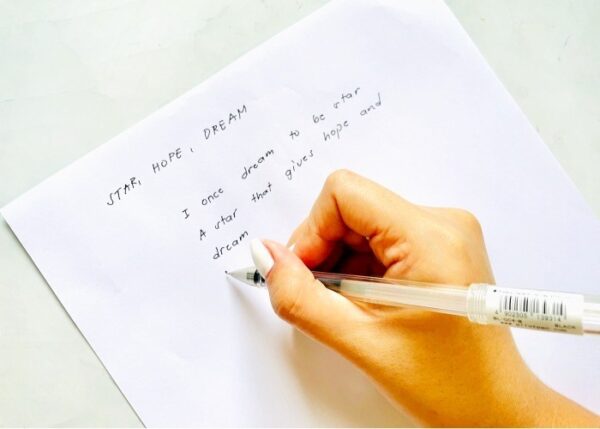 STAR, HOPE, DREAM
I once dream to be star
A star that gives hope and
dream
BLACK